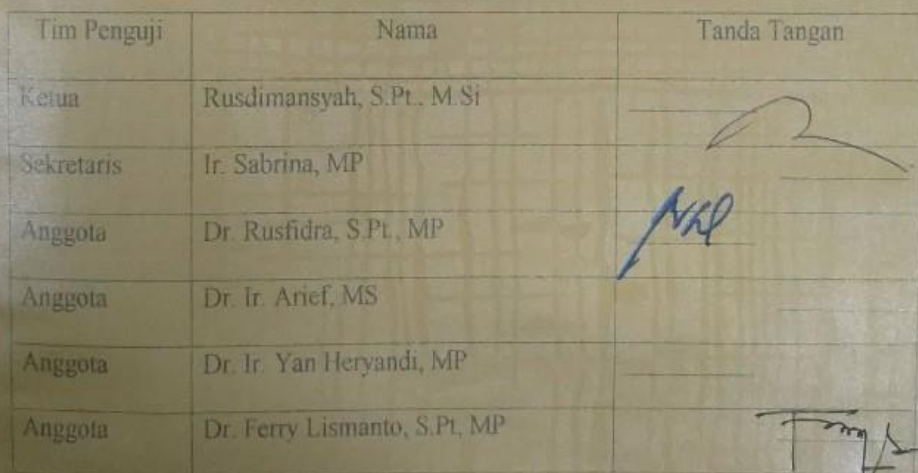 Tim Penguji Nama Tanda Tangan
Ketua Rusdimansyah, S.Pt., M.Si
Sekretaris Ir. Sabrina, MP
Anggota Dr. Rusfidra, S.Pt., MP
Anggota Dr. Ir. Arief, MS
Anggota Dr. Ir. Yan Heryandi, MP
Anggota Dr. Ferry Lismanto, S.Pt, MP